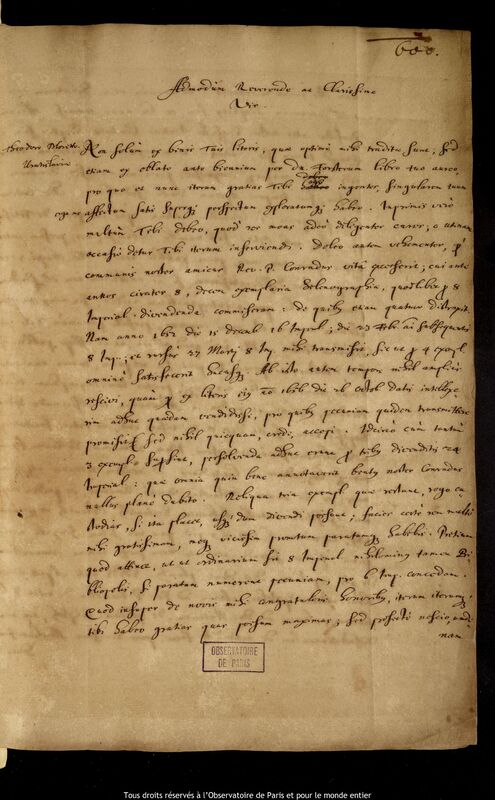 600.
Admodum Reverende ac Clarissime
Vir
Theodoro Moreto
Vratislaviam
Non solùm ex binis Tuis literis, quæ optimè mihi traditæ sunt, sed
etiam ex oblato ante biennium per dn. Forsterum libro tuo aureo,
debeo
pro quo et nunc iterum gratias Tibi habeo ingentes, singularem tuum
erga me affectum satis superq; perspectum exploratumq; habeo. Inprimis verò
multùm Tibi debeo, quod res meas adeò diligenter curas, o utinam
occasio detur Tibi iterum inserviendi. Doleo autem vehementer, q
communis noster amicus Rev. P. Conradus vitâ excesserit; cui ante
annos circiter 8, decem exemplaria Selenographiæ, quodlibet p 8
Imperial. divendenda commiseram: de quibus etiam quatuor distraxit.
Nam anno 1652 die 15 Decemb 16 Imperial; die 23 Febr. ai subsequentis
8 Imp., et rursùs 27 Martij 8 Imp. mihi transmisit, sic ut p 4 exempl.
omninò satisfecerit hucusq;. Ab isto autem tempore nihil ampliùs
rescivi, quàm q ex literis eius ao 1656 die 26 Octob datis intellexe-
rim adhuc quædam vendidisse, pro quibus pecuniam quidem transmittere
promisit; sed nihil quicquam, credi, accepi. Ideircò cùm tantùm
3 exempl. supsint, persolvenda adhuc erunt p tribus divenditis 24
Imperial: quæ omnia quin bene annotaverit beatus noster Conradus
nullus planè dubito. Reliqua tria exempl quæ restant, rogo cu-
stodias, si ita placet, usq; dum divendi possint; facies certè rem multò
mihi gratissimam, meq; vicissim promtum paratumq; habebis. Pretium
quod attinet, ut ut ordinarium sit 8 Imperial nihilominus tamen Bi-
bliopolis, si paratam numerent pecuniam, pro 6 Imp. concedam.
Quod insuper de novis mihi congratuleris honoribus, iterum iterumq;
tibi habeo gratias quas possum maximas; sed profectò nescio, und
nam
OBSERVATOIRE
DE PARIS
Tous droits réservés à l'Observatoire de Paris et pour le monde entier